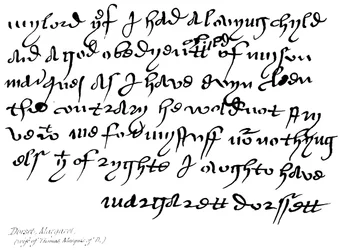 my lord yf I had a lowyng chyld
and a god obedyentt chyld of my son
marques as I have evyn
the contrary he wold not
me for my stuff nothyng
els of ryghte I owghte to have
margarett dorssett
Dorset, Margaret,
(wife of Thomas Marquis of D.)